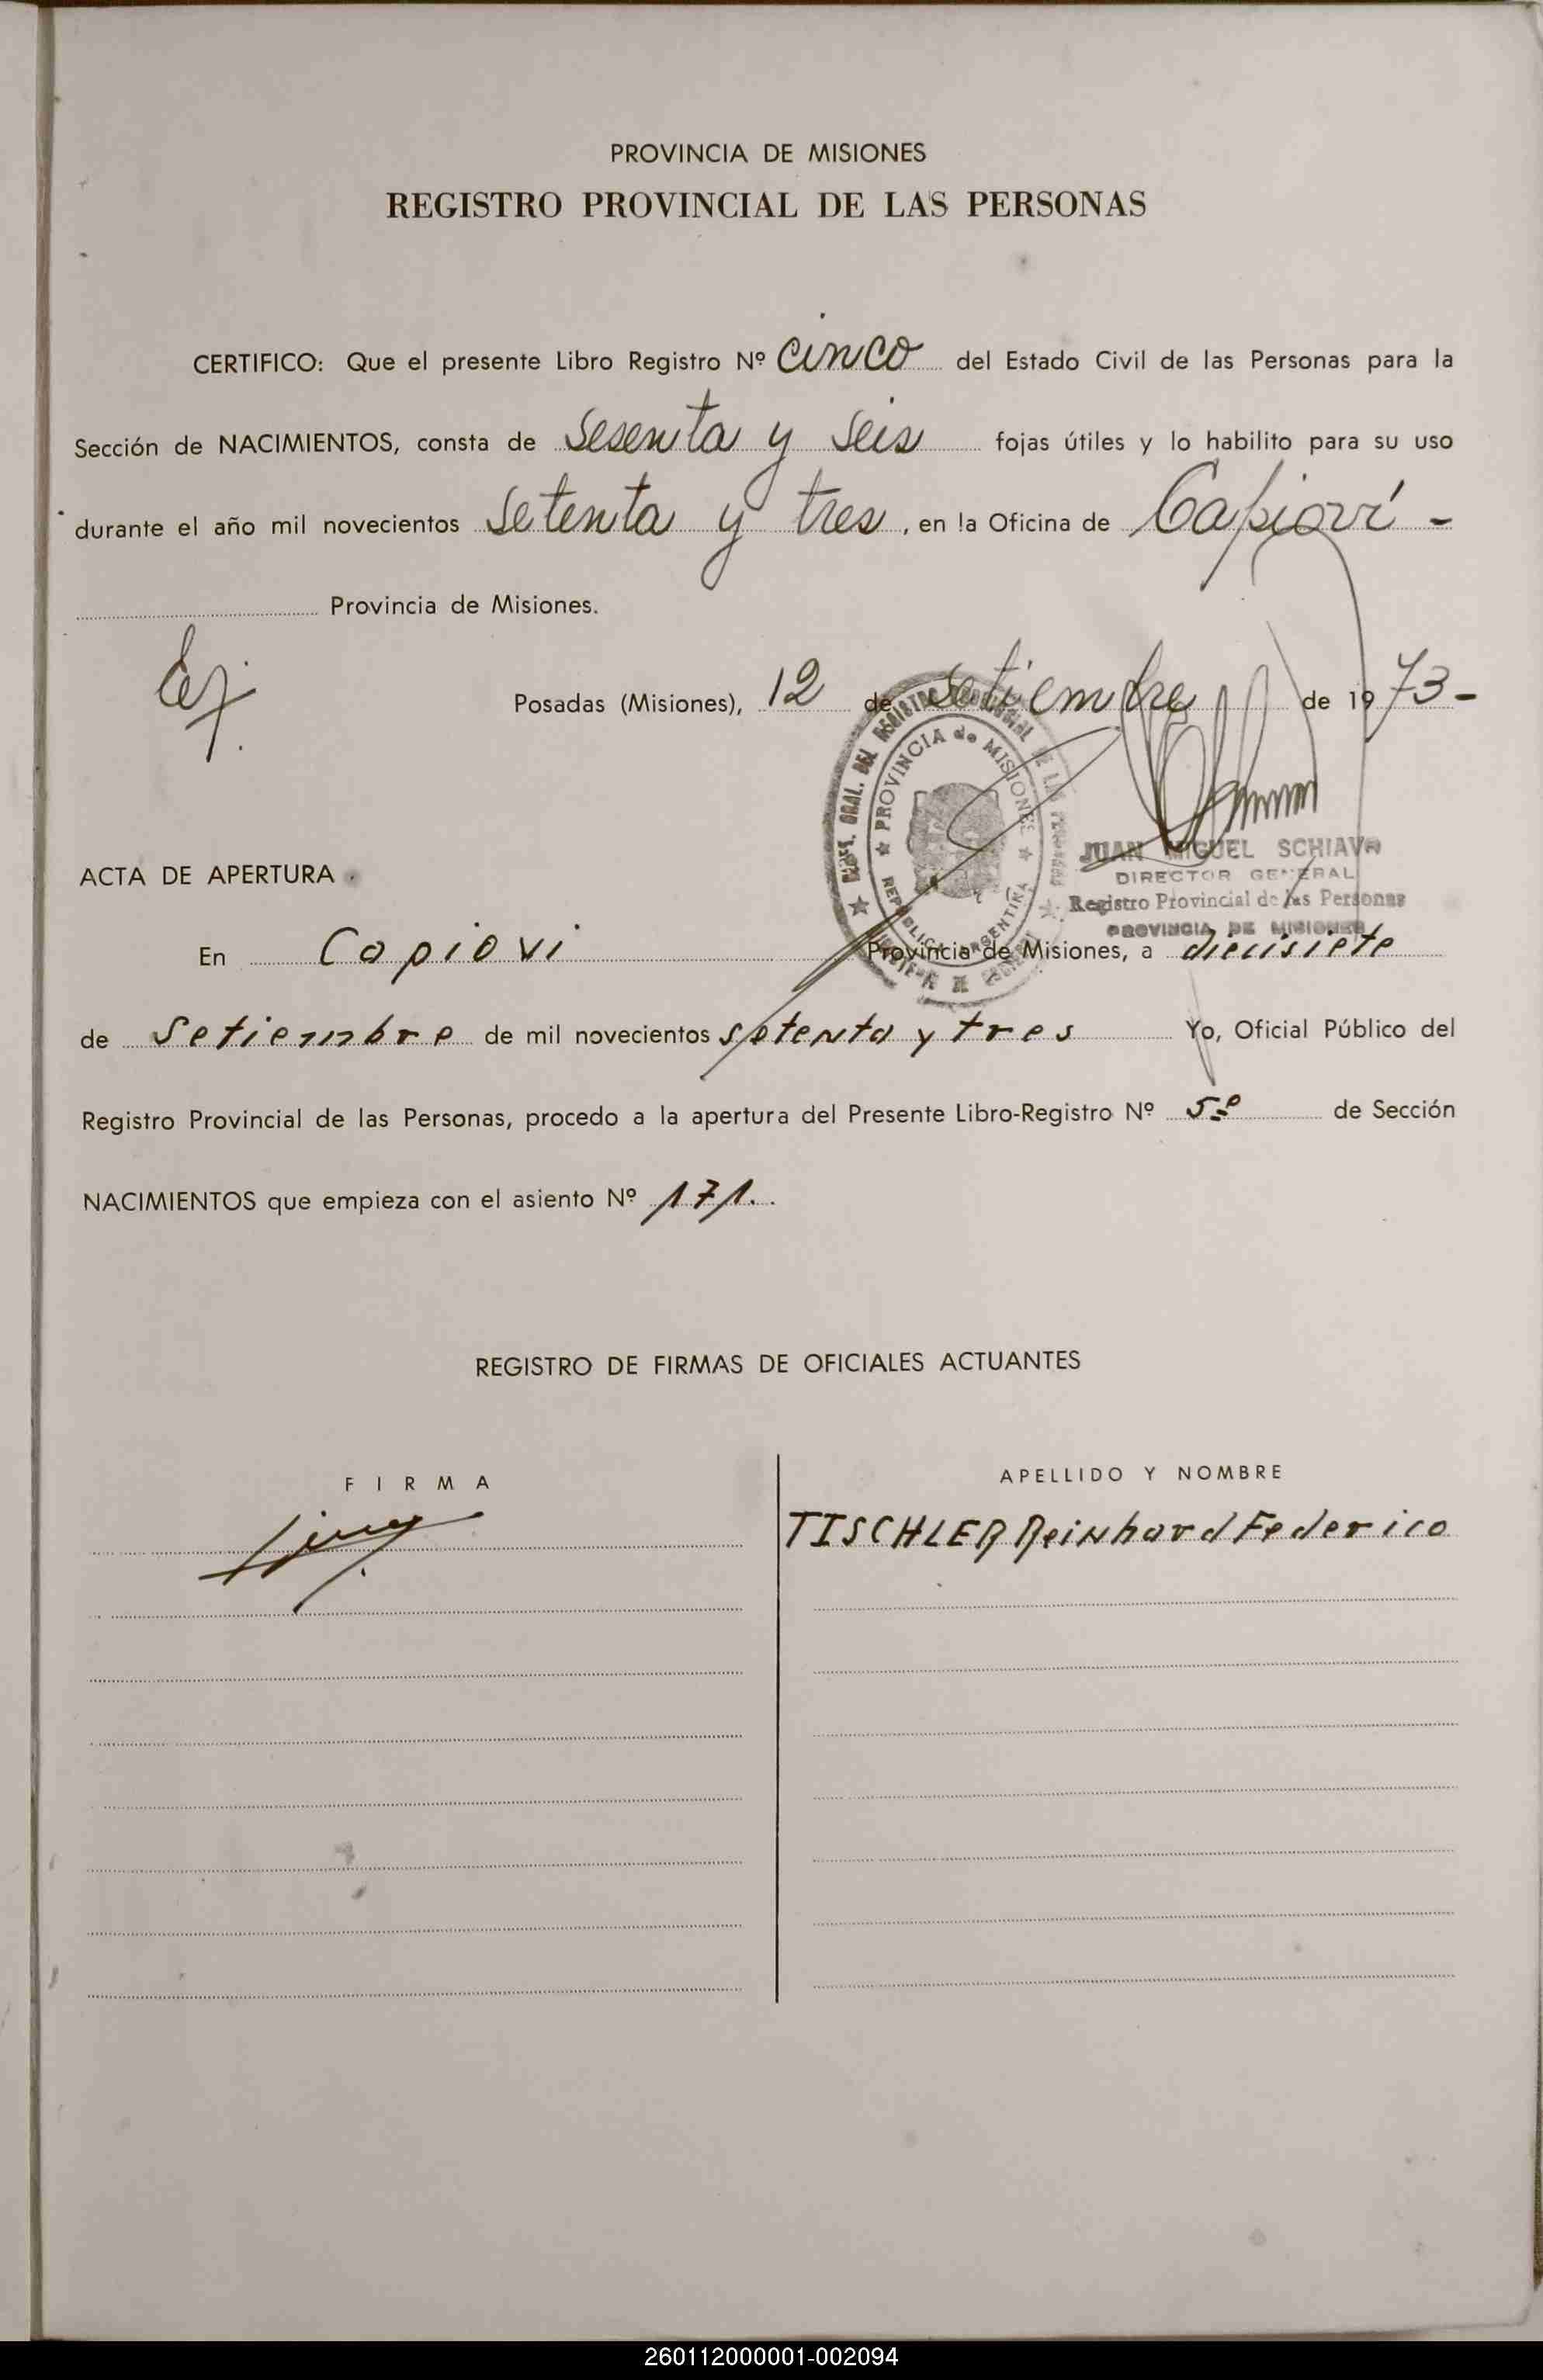 PROVINCIA DE MISIONES
REGISTRO PROVINCIAL DE LAS PERSONAS
CERTIFICO: Que el presente Libro Registro Nº cinco del Estado Civil de las Personas para la
Sección de NACIMIENTOS, consta de Sesenta y Seis fojas útiles y lo habilito para su uso
durante el año mil novecientos Setenta y tres, en la Oficina de Capioví -
Provincia de Misiones.
Posadas (Misiones), 12 de Setiembre de 1973-
PROVINCIA de MISIONES
REPUBLICA ARGENTINA
JUAN MIGUEL SCHIAVO
DIRECTOR GENERAL
Registro Provincial de las Personas
PROVINCIA DE MISIONES
ACTA DE APERTURA
En Capiovi Provincia de Misiones, a diecisiete
de Setiembre de mil novecientos setenta y tres Yo, Oficial Público del
Registro Provincial de las Personas, procedo a la apertura del Presente Libro-Registro Nº 5º de Sección
NACIMIENTOS que empieza con el asiento Nº 171.
REGISTRO DE FIRMAS DE OFICIALES ACTUANTES
FIRMA
APELLIDO Y NOMBRE
TISCHLER Reinhard Federico
260112000001-002094